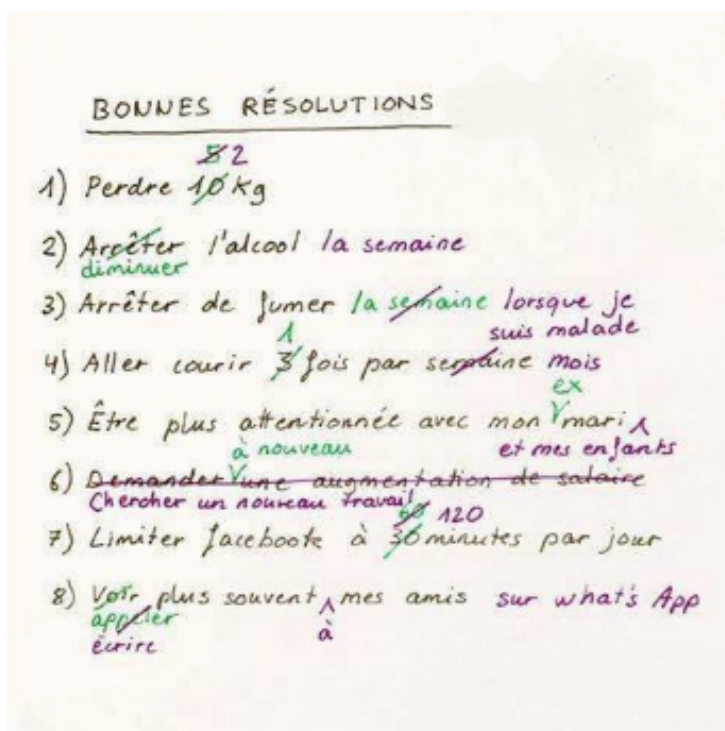 BONNES RÉSOLUTIONS
5 2
1) Perdre 10 Kg
2) Arrêter l'alcool la semaine
diminuer
3) Arrêter de fumer la semaine lorsque je
1 suis malade
4) Aller courir 3 fois par semaine mois
ex
5) Être plus attentionnée avec mon mari
à nouveau et mes enfants
6) Demander une augmentation de salaire
Chercher un nouveau travail
60 120
7) Limiter facebook à 30 minutes par jour
8) Voir plus souvent mes amis sur what's App
appeler
écrire à